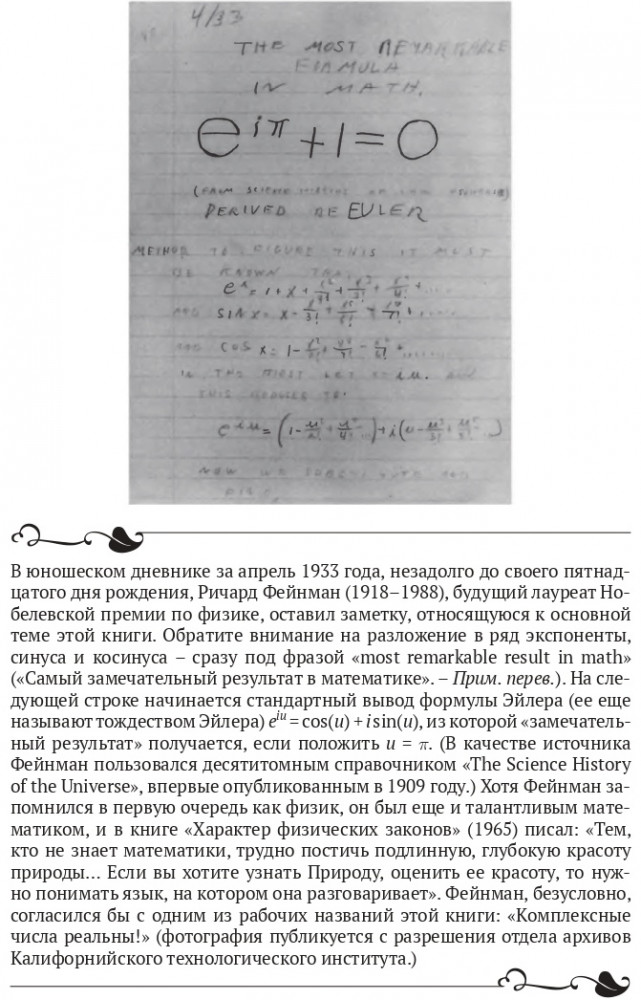 4/33
THE MOST REMARKABLE
FORMULA
IN MATH.
e^{iπ} + 1 = 0
(FROM SCIENCE HISTORY OF THE UNIVERSE)
DERIVED BY EULER
THIS IT MUST
BE KNOWN THAT
e^x = 1 + x + x²/2! + x³/3! + x⁴/4! + ....
AND SIN X = x - x³/3! + x⁵/5! - x⁷/7! + .....
AND COS X = 1 - x²/2! + x⁴/4! - x⁶/6! + ......
IN THE FIRST LET X = iu. AND
THIS REDUCES TO:
e^{iu} = (1 - u²/2! + u⁴/4! - ...) + i(u - u³/3! + u⁵/5! - ...)
NOW WE
В юношеском дневнике за апрель 1933 года, незадолго до своего пятнад-
цатого дня рождения, Ричард Фейнман (1918–1988), будущий лауреат Но-
белевской премии по физике, оставил заметку, относящуюся к основной
теме этой книги. Обратите внимание на разложение в ряд экспоненты,
синуса и косинуса – сразу под фразой «most remarkable result in math»
(«Самый замечательный результат в математике». – Прим. перев.). На сле-
дующей строке начинается стандартный вывод формулы Эйлера (ее еще
называют тождеством Эйлера) e^{iu} = cos(u) + i sin(u), из которой «замечатель-
ный результат» получается, если положить u = π. (В качестве источника
Фейнман пользовался десятитомным справочником «The Science History
of the Universe», впервые опубликованным в 1909 году.) Хотя Фейнман за-
помнился в первую очередь как физик, он был еще и талантливым мате-
матиком, и в книге «Характер физических законов» (1965) писал: «Тем,
кто не знает математики, трудно постичь подлинную, глубокую красоту
природы... Если вы хотите узнать Природу, оценить ее красоту, то нуж-
но понимать язык, на котором она разговаривает». Фейнман, безусловно,
согласился бы с одним из рабочих названий этой книги: «Комплексные
числа реальны!» (фотография публикуется с разрешения отдела архивов
Калифорнийского технологического института.)